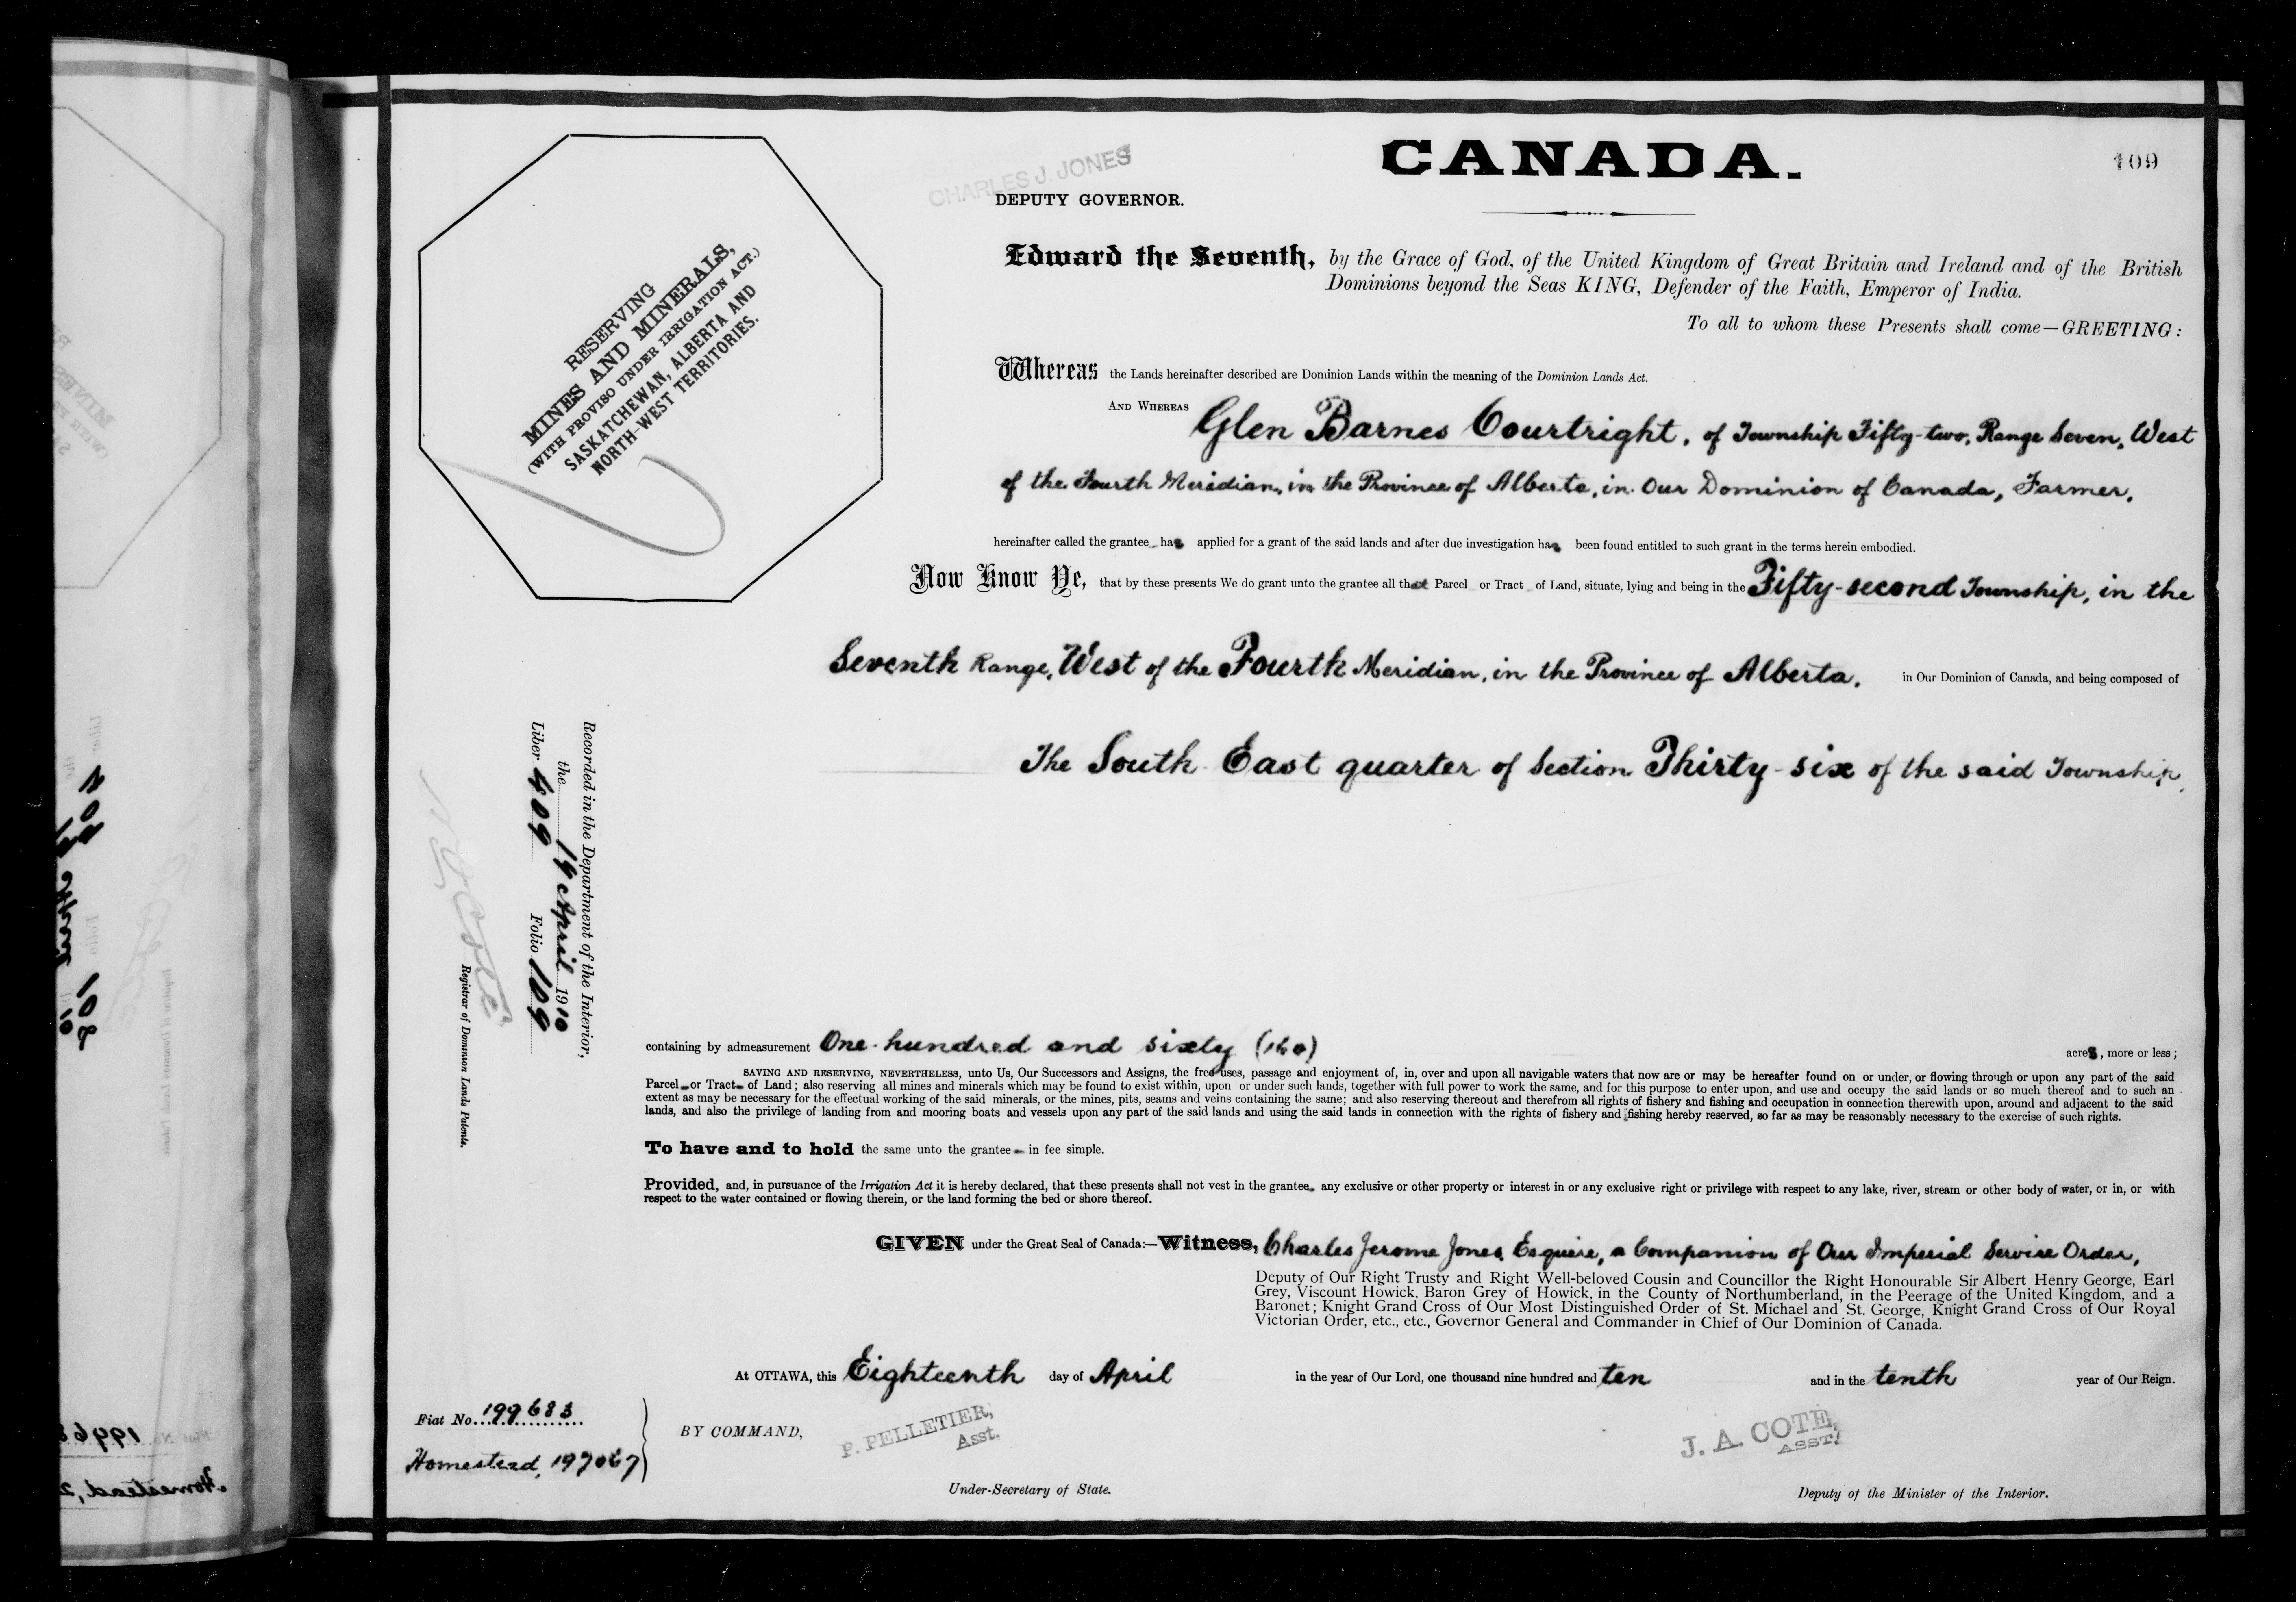 CANADA.
109
CHARLES J. JONES
DEPUTY GOVERNOR.
RESERVING
MINES AND MINERALS,
(WITH PROVISO UNDER IRRIGATION ACT.)
SASKATCHEWAN, ALBERTA AND
NORTH-WEST TERRITORIES.
Edward the Seventh, by the Grace of God, of the United Kingdom of Great Britain and Ireland and of the British
Dominions beyond the Seas KING, Defender of the Faith, Emperor of India.
To all to whom these Presents shall come—GREETING:
Whereas the Lands hereinafter described are Dominion Lands within the meaning of the Dominion Lands Act.
AND WHEREAS Glen Barnes Courtright, of Township Fifty-two, Range Seven, West
of the Fourth Meridian, in the Province of Alberta, in Our Dominion of Canada, Farmer,
hereinafter called the grantee has applied for a grant of the said lands and after due investigation has been found entitled to such grant in the terms herein embodied.
Now Know Ye, that by these presents We do grant unto the grantee all that Parcel or Tract of Land, situate, lying and being in the Fifty-second Township, in the
Seventh Range, West of the Fourth Meridian, in the Province of Alberta, in Our Dominion of Canada, and being composed of
The South East quarter of Section Thirty-six of the said Township,
Recorded in the Department of the Interior,
the 19 April 1910
Liber 409 Folio 109
N O Coté
Registrar of Dominion Lands Patents.
containing by admeasurement One hundred and sixty (160) acres, more or less;
SAVING AND RESERVING, NEVERTHELESS, unto Us, Our Successors and Assigns, the free uses, passage and enjoyment of, in, over and upon all navigable waters that now are or may be hereafter found on or under, or flowing through or upon any part of the said
Parcel or Tract of Land; also reserving all mines and minerals which may be found to exist within, upon or under such lands, together with full power to work the same, and for this purpose to enter upon, and use and occupy the said lands or so much thereof and to such an
extent as may be necessary for the effectual working of the said minerals, or the mines, pits, seams and veins containing the same; and also reserving thereout and therefrom all rights of fishery and fishing and occupation in connection therewith upon, around and adjacent to the said
lands, and also the privilege of landing from and mooring boats and vessels upon any part of the said lands and using the said lands in connection with the rights of fishery and fishing hereby reserved, so far as may be reasonably necessary to the exercise of such rights.
To have and to hold the same unto the grantee in fee simple.
Provided, and, in pursuance of the Irrigation Act it is hereby declared, that these presents shall not vest in the grantee any exclusive or other property or interest in or any exclusive right or privilege with respect to any lake, river, stream or other body of water, or in, or with
respect to the water contained or flowing therein, or the land forming the bed or shore thereof.
GIVEN under the Great Seal of Canada:—Witness, Charles Jerome Jones, Esquire, a Companion of Our Imperial Service Order,
Deputy of Our Right Trusty and Right Well-beloved Cousin and Councillor the Right Honourable Sir Albert Henry George, Earl
Grey, Viscount Howick, Baron Grey of Howick, in the County of Northumberland, in the Peerage of the United Kingdom, and a
Baronet; Knight Grand Cross of Our Most Distinguished Order of St. Michael and St. George, Knight Grand Cross of Our Royal
Victorian Order, etc., etc., Governor General and Commander in Chief of Our Dominion of Canada.
At OTTAWA, this Eighteenth day of April in the year of Our Lord, one thousand nine hundred and ten and in the tenth year of Our Reign.
Fiat No. 199683
Homestead, 197067
BY COMMAND,
P. PELLETIER,
Asst.
Under-Secretary of State.
J. A. COTE,
ASST.
Deputy of the Minister of the Interior.